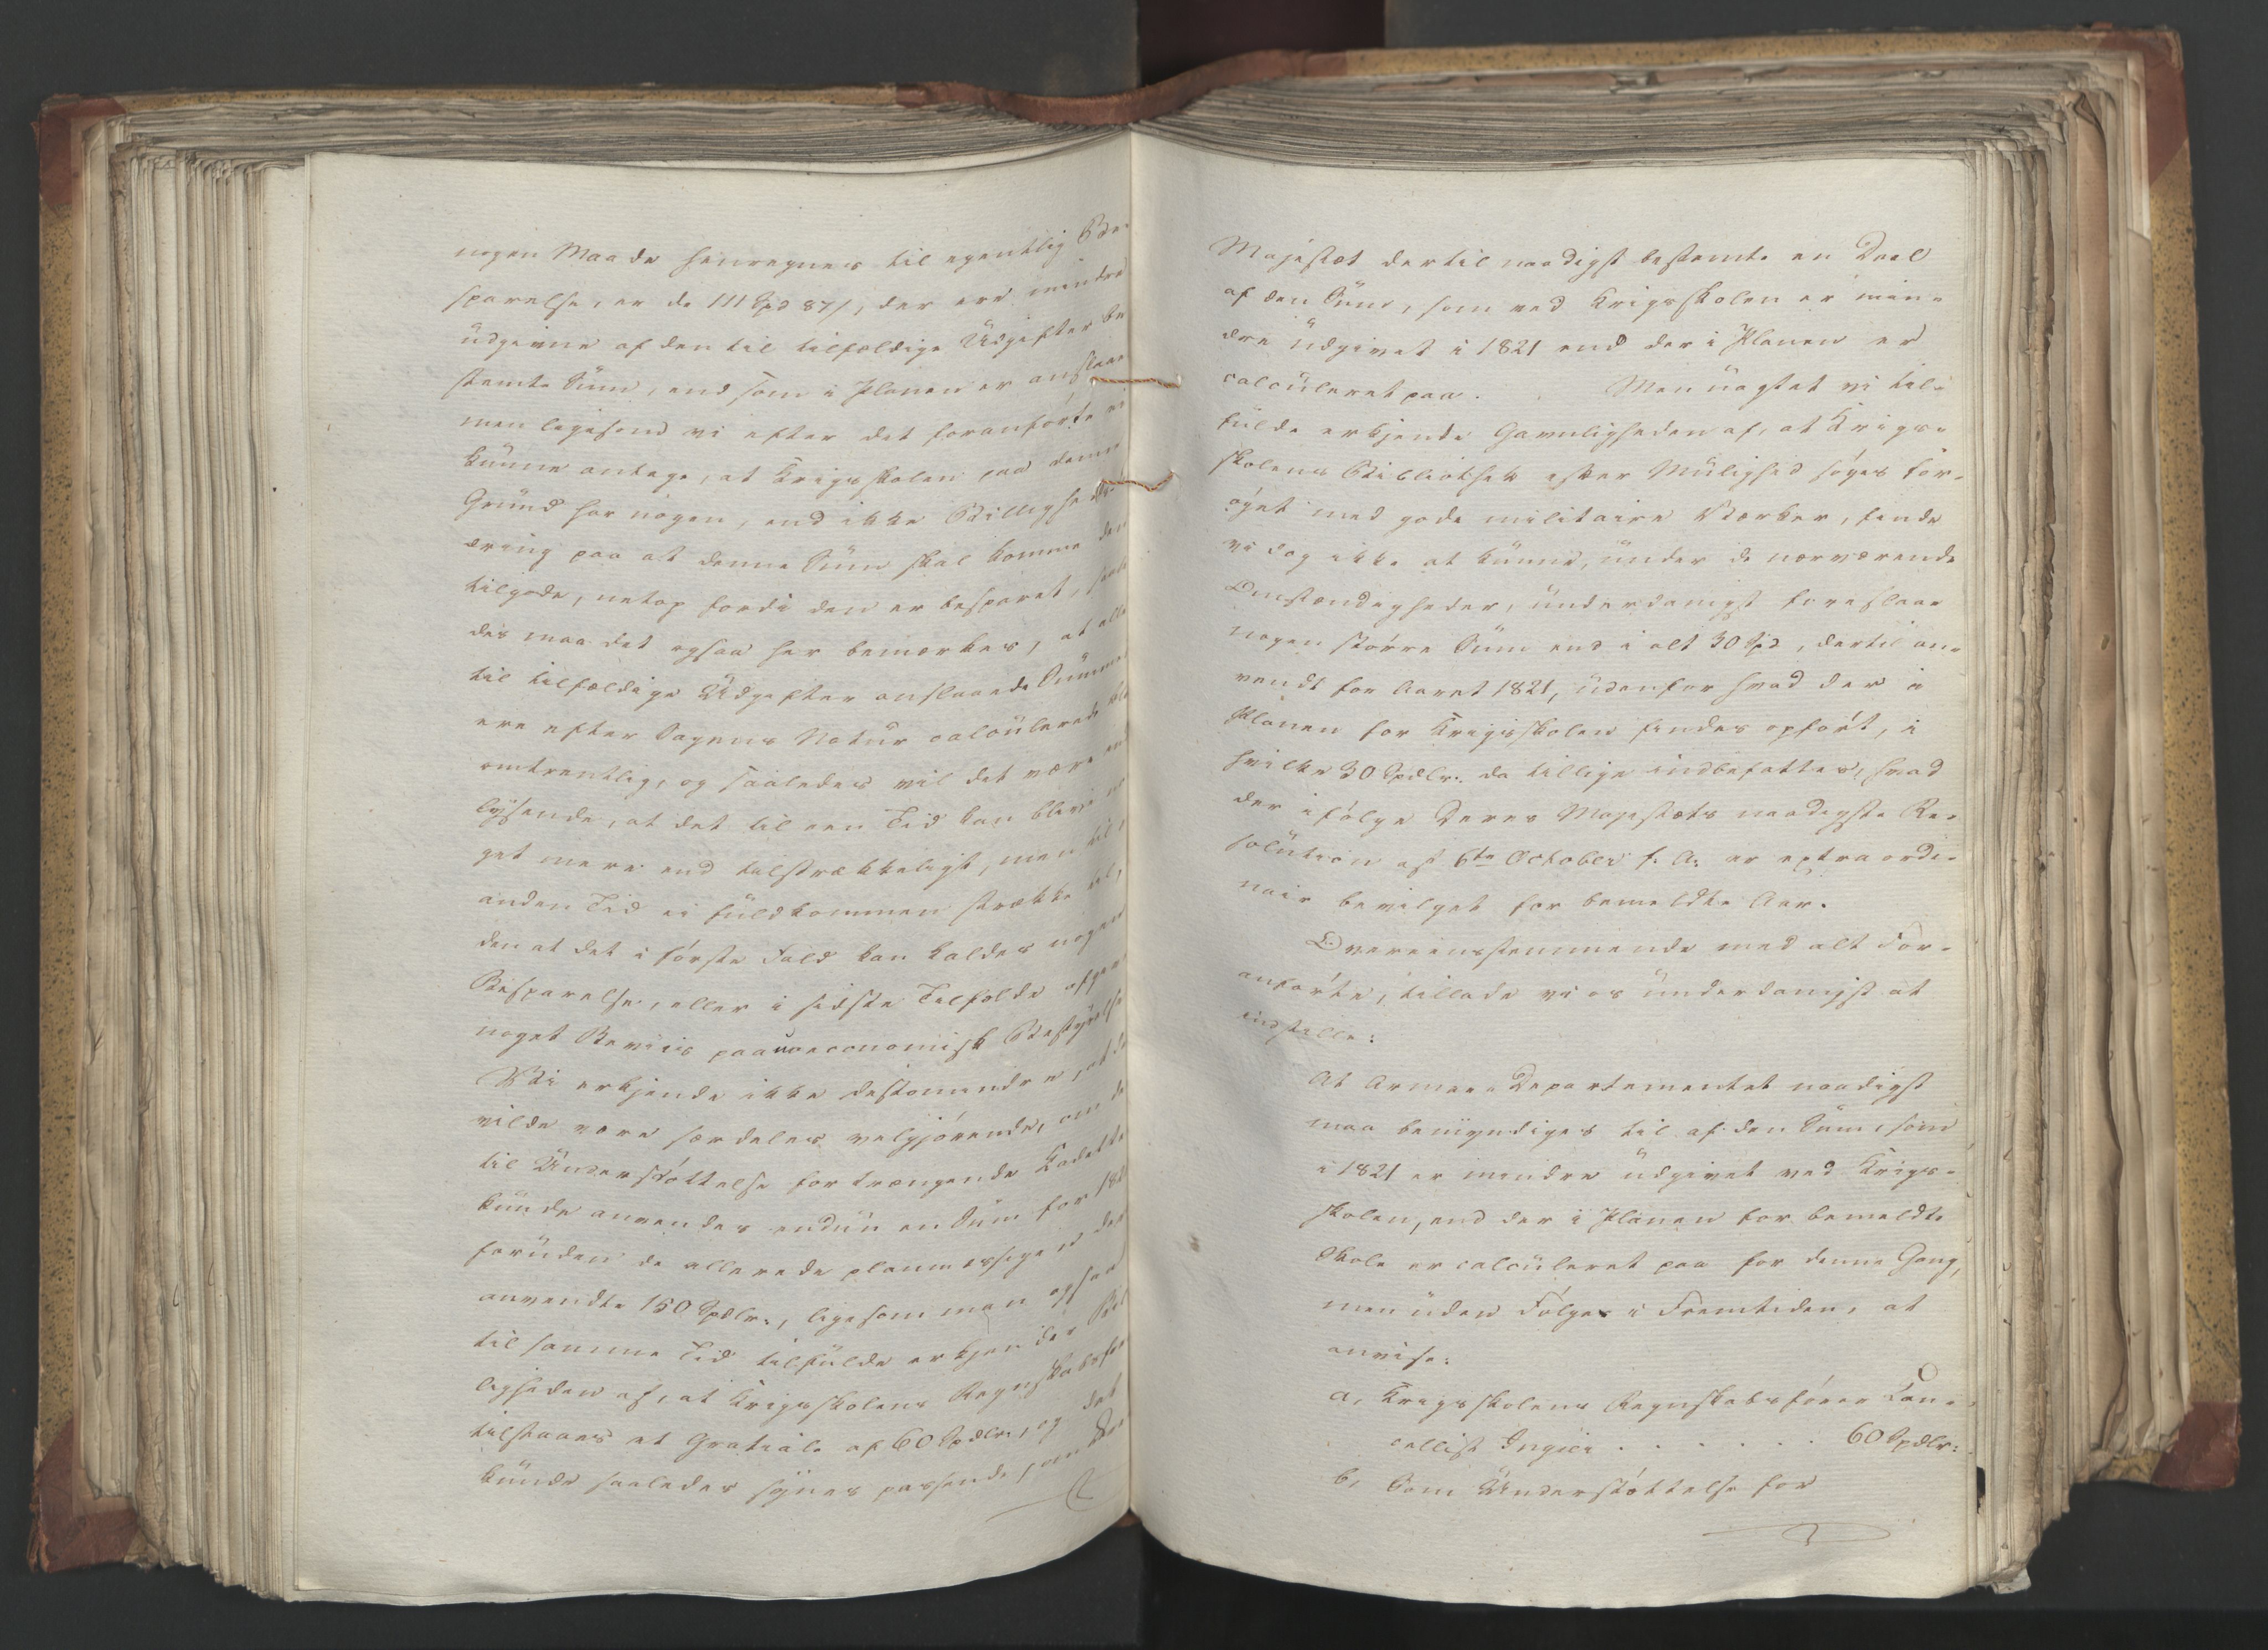 nogen Maade henregnes til egentlig Be-
sparelse, er de 111 Spd 87 s, der ere mindre
udgivne af den til tilfældige Udgifter be
stemte Sum, end som i Planen er anslaaet
men ligesaa vi efter det foranførte ei
kunne antage, at Krigsskolen paa denne
Grund har nogen, end ikke Billigheds
dring paa at denne Sum skal komme den
tilgode, netop fordi den er besparet, saale
des maa det ogsaa her bemærkes, at alle
til tilfældige Udgifter anslaaede Summer
ere efter Sagens Natur calculerede
omtrentlig, og saaledes vil det være ind
lysende, at det til een Tid kan blive no
get mere end tilstrækkeligt, men til
anden Tid ei fuldkommen strække til,
den at det i første Fald kan kaldes nogen
Besparelse, eller i sidste Tilfælde afgive
noget Beviis paa uoeconomisk Bestyrelse
Vi erkjende ikke destomindre, at de
vilde være særdeles velgjørende, om de
til Understøttelse for trængende Kadette
kunde anvendes endnu en Sum for 182
foruden de allerede planmæssigen der
anvendte 150 Spdlr:, ligesom man ogsaa
til samme Tid tilfulde erkjender Bil
ligheden af, at Krigsskolens Regnskabsfør
tilstaaes et Gratiale af 60 Spdlr:, og det
kunde saaledes synes passende, om Der
Majestæt dertil naadigst bestemte en Deel
af den Sum, som ved Krigsskolen er min-
dre udgivet i 1821 end der i Planen er
calculeret paa. Men uagtet vi til-
fulde erkjende Gavnligheden af, at Krigs-
skolens Bibliothek efter Mulighed søges for-
øget med gode militaire Værker, finde
vi dog ikke at kunne, under de nærværende
Omstændigheder, underdanigst foreslaae
nogen større Sum end i alt 30 Spd, dertil an-
vendt for Aaret 1821, udenfor hvad der i
Planen for Krigsskolen findes opført, i
hvilke 30 Spdlr: da tillige indbefattes, hvad
der ifølge Deres Majestæts naadigste Re-
solution af 6te October f. A. er extraordi-
nair bevilget for bemeldte Aar.
Overeensstemmende med alt For-
anførte, tillade vi os underdanigst at
indstille:
At Armee-Departementet naadigst
maa bemyndiges til af den Sum, som
i 1821 er mindre udgivet ved Krigs-
skolen, end der i Planen for bemeldte
Skole er calculeret paa for denne Gang,
men uden Følger i Fremtiden, at
anvise:
a, Krigsskolens Regnskabsfører Can-
cellist Ingier . . . . . . 60 Spdlr:
b, Som Understøttelse for